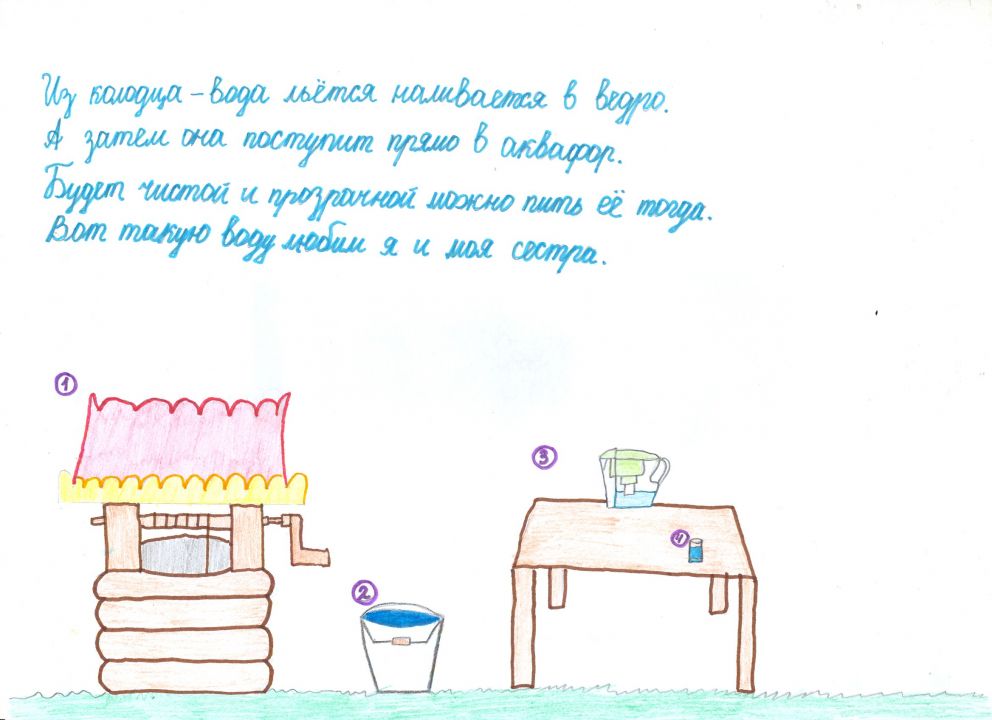 Из колодца - вода льётся наливается в ведро.
А затем она поступит прямо в аквафор.
Будет чистой и прозрачной можно пить её тогда.
Вот такую воду любим я и моя сестра.
1
2
3
4